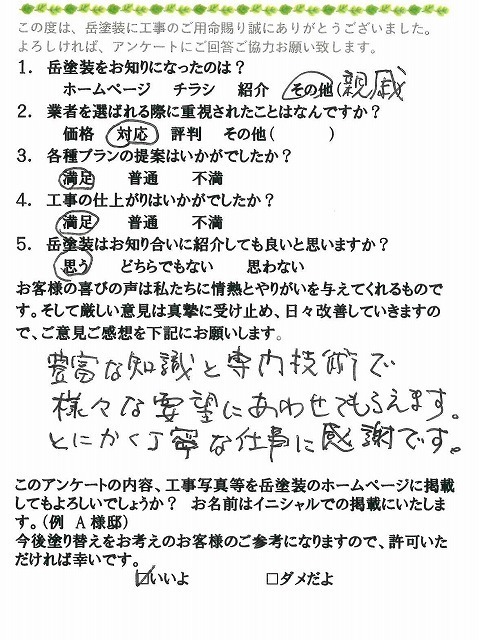 この度は、岳塗装に工事のご用命賜り誠にありがとうございました。
よろしければ、アンケートにご回答ご協力お願い致します。
1. 岳塗装をお知りになったのは？
ホームページ チラシ 紹介 その他(親戚
2. 業者を選ばれる際に重視されたことはなんですか？
価格 対応 評判 その他( )
3. 各種プランの提案はいかがでしたか？
満足 普通 不満
4. 工事の仕上がりはいかがでしたか？
満足 普通 不満
5. 岳塗装はお知り合いに紹介しても良いと思いますか？
思う どちらでもない 思わない
お客様の喜びの声は私たちに情熱とやりがいを与えてくれるもので
す。そして厳しい意見は真摯に受け止め、日々改善していきますの
で、ご意見ご感想を下記にお願いします。
豊富な知識と専門技術で
様々な要望にあわせてもらえます。
とにかく丁寧な仕事に感謝です。
このアンケートの内容、工事写真等を岳塗装のホームページに掲載
してもよろしいでしょうか？ お名前はイニシャルでの掲載にいたしま
す。(例 A 様邸)
今後塗り替えをお考えのお客様のご参考になりますので、許可いた
だければ幸いです。
☑いいよ □ダメだよ